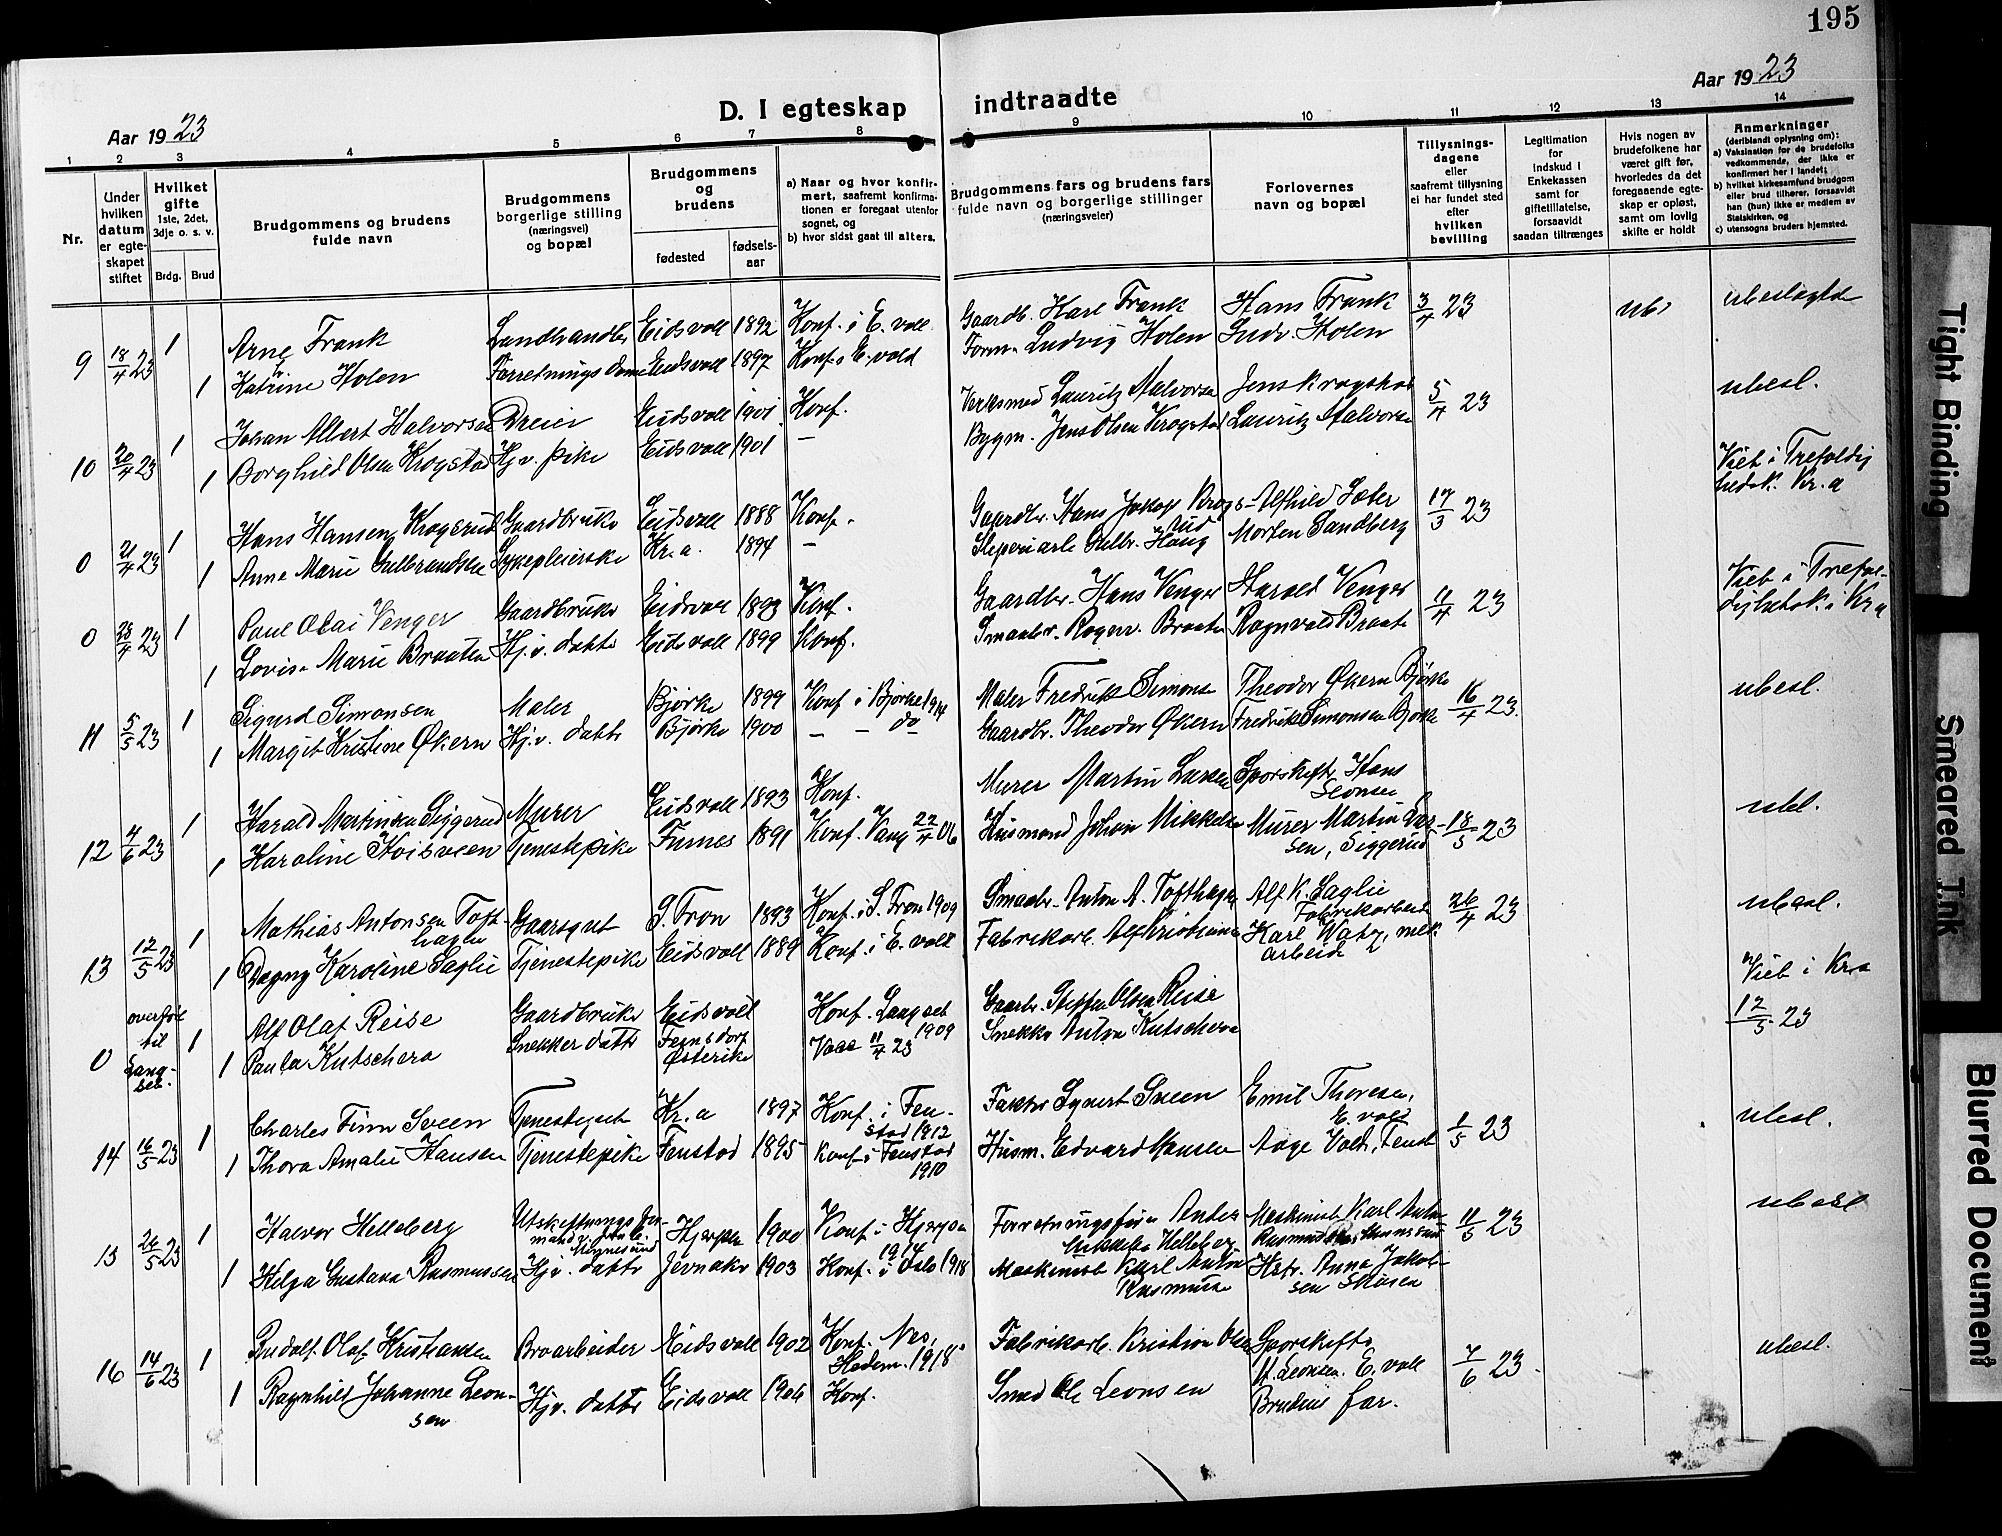 195
D. I egteskap indtraadte
Aar 1923
Aar 1923
1 2 3 4 5 6 7 8 9 10 11 12 13 14
Nr.
Under hvilken datum er egteskapet stiftet
Hvilket gifte 1ste, 2det, 3dje o. s. v.
Brdg. Brud
Brudgommens og brudens fulde navn
Brudgommens borgerlige stilling (næringsvei) og bopæl
Brudgommens og brudens
fødested
fødselsaar
a) Naar og hvor konfirmert, saafremt konfirmationen er foregaat utenfor sognet, og
b) hvor sidst gaat til alters.
Brudgommens fars og brudens fars fulde navn og borgerlige stillinger (næringsveier)
Forlovernes navn og bopæl
Tillysningsdagene eller saafremt tillysning ei har fundet sted efter hvilken bevilling
Legitimation for indskud i Enkekassen samt for giftetillatelse, forsaavidt saadan tiltrænges
Hvis nogen av brudefolkene har været gift før, hvorledes da det foregaaende egteskap er opløst, samt om lovlig skifte er holdt
Anmerkninger (deriblandt oplysning om):
a) Vaksination for de brudefolks vedkommende, der ikke er konfirmert her i landet;
b) hvilket kirkesamfund brudgom eller brud tilhører, forsaavidt han (hun) ikke er medlem av Statskirken, og
c) utensogns bruders hjemsted.
9 18/4 23 1 Arne Frank Landhandler Eidsvoll 1892 Konf. i E. voll Gaardb. Karl Frank Hans Frank 3/4 23 ubeslagtde
1 Katrine Holen Forretningsdame Eidsvoll 1897 Konf. i E. vold Form. Ludvig Holen Ludv. Holen
10 20/4 23 1 Johan Albert Halvorsen Dreier Eidsvoll 1901 Konf. Verksmed Lauritz Halvorsen Jens Krogstad 5/4 23 ubesl.
1 Borghild Olsen Krogstad Hj.v. pike Eidsvoll 1901 — Bygm. Jens Olsen Krogstad Lauritz Halvorsen
0 21/4 23 1 Hans Hansen Krogsrud Gaardbruker Eidsvoll 1888 Konf. Gaardbr. Hans Jakob Krogsrud Alfhild Sæter 17/3 23 Viet i Trefoldighedsk. Kr.a
1 Anne Marie Gulbrandsen Sykepleierske Kr.a. 1894 — Gulbr. Haug Morten Sandberg
0 28/4 23 1 Paul Olai Venger Gaardbruker Eidsvoll 1893 Konf. Gaardbr. Hans Venger Harald Venger 11/4 23 Viet i Trefoldighetsk. i Kr.a
1 Lovise Marie Braaten Hj.v. datter Eidsvoll 1899 Konf. Smaabr. Ragnv. Braaten Ragnvald Braate
11 5/5 23 1 Sigurd Simonsen Maler Bjørke 1899 Konf. i Bjørke 1914 Maler Fredrik Simonsen Theodor Økern Bjørke 16/4 23 ubesl.
1 Margit Kristine Økern Hj.v. datter Bjørke 1900 — — do Gaardbr. Theodor Økern Fredrik Simonsen Bjørke
12 4/6 23 1 Harald Martinsen Siggerud Murer Eidsvoll 1893 Konf. Murer Martin Larsen Sporskifter Hans Leonsen 18/5 23 ubl.
1 Karoline Hoisveen Tjenestepike Furnes 1891 Konf. Vang 22/4 06 Husmand Johan Mikkelsen Murer Martin Larsen, Siggerud
13 12/5 23 1 Mathias Antonsen Tofthagen Gaarsgut S. Fron 1893 Konf. i S. Fron 1909 Smaabr. Anton A. Tofthagen Alf K. Saglie Fabrikarbeider 26/4 23 ubesl.
1 Dagny Karoline Saglie Tjenestepike Eidsvoll 1889 Konf. i E. voll Fabrikarb. Karl mek. arbeider
0 overført til Langset. 1 Alf Olaf Reise Gaardbruker Eidsvoll Konf. Langset 1909 Gaardbr. Steffen Olsen Reise Viet i Kr.a 12/5 23
1 Paula Kutschera Snekker datter Østerike 11/4 23 Snekker Anton Kutschera
14 16/5 23 1 Charles Finn Sveen Tjenestegut Kr.a 1897 Konf. i Fenstad 1912 Faktor Syvert Sveen Emil Thoresen, E. vold 1/5 23 ubesl.
1 Thora Amalie Hansen Tjenestepike Fenstad 1895 Konf. i Fenstad 1910 Husm. Edvard Hansen Aage Vold, Fenst
15 26/5 23 1 Halvor Helleberg Utskiftningsformand Minnesund 1900 Konf. i 1914 Forretningsfører Anders Helleberg Maskinist Karl Anton Rasmussen 11/5 23 ubesl
1 Helga Gustava Rasmussen Hj.v. datter Jevnaker 1903 Konf. i Oslo 1918 Maskinist Karl Anton Rasmussen Hstr. Anna Jakobsen
16 14/6 23 1 Rudolf Olaf Kristiansen Broarbeider Eidsvoll 1902 Konf. Nes, Hedem. 1918 Fabrikarb. Kristian Olsen Sporskifter H. Leonsen E. voll 7/6 23 ubesl.
1 Ragnhild Johanne Leonsen Hj.v. datter Eidsvoll 1906 Konf. Smed Ole Leonsen Brudens far.
Tight Binding
Smeared Ink
Blurred Document